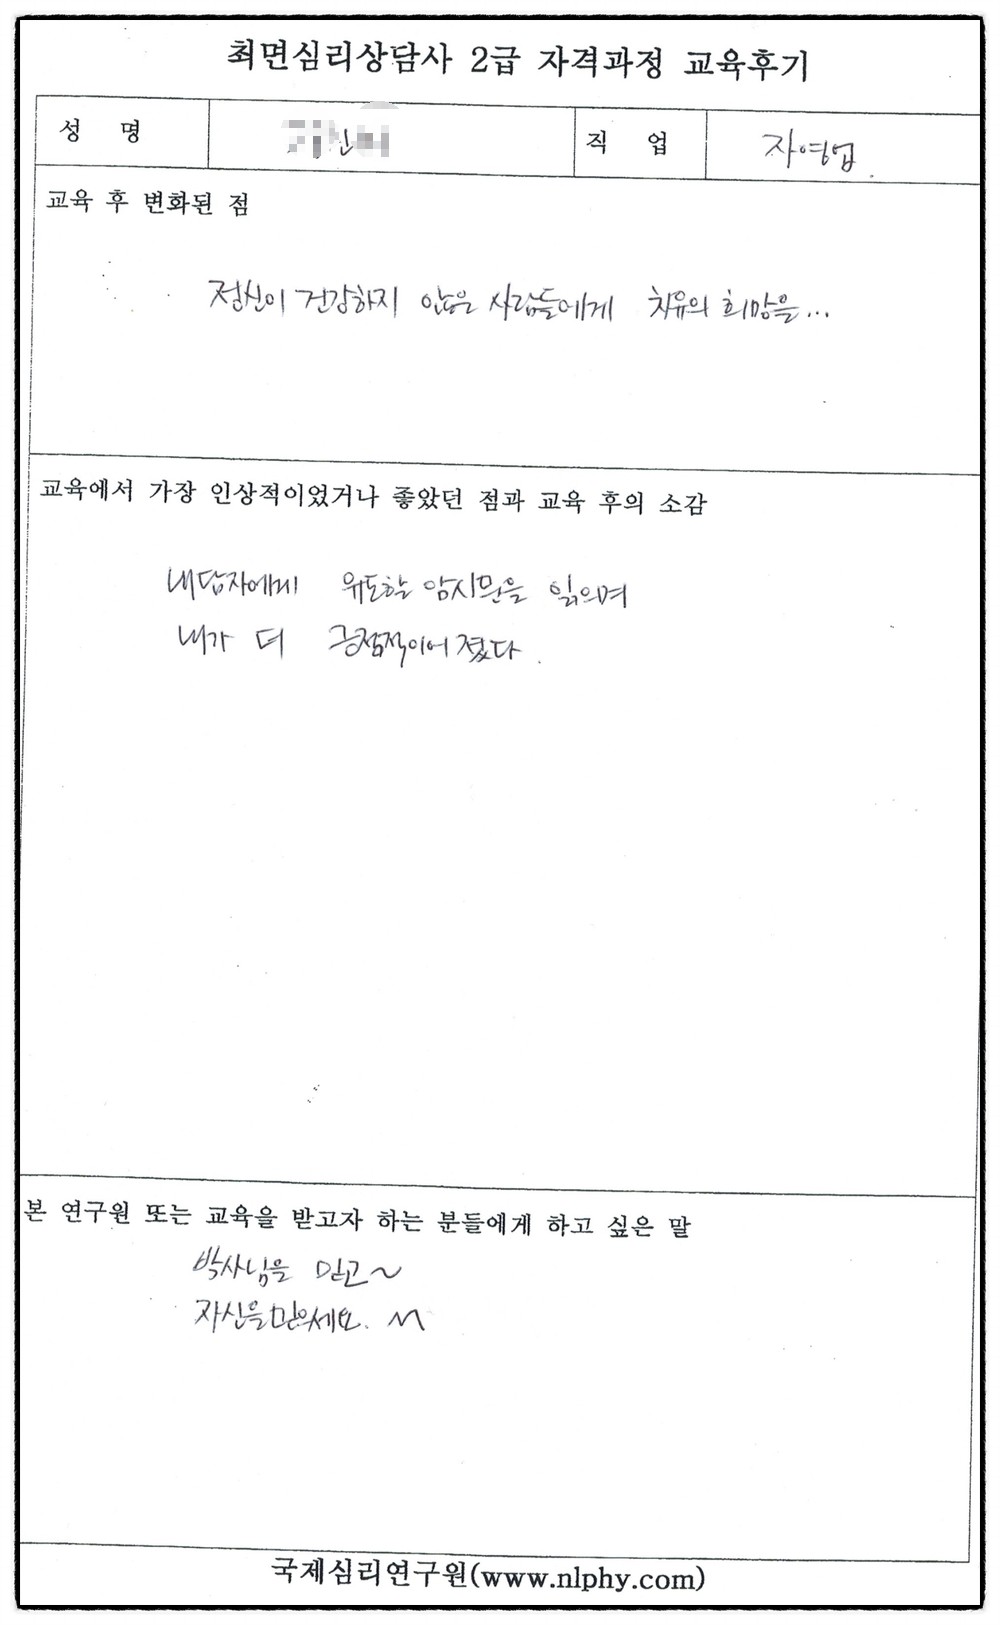 최면심리상담사 2급 자격과정 교육후기
성 명 직 업 자영업.
교육 후 변화된 점
정신이 건강하지 않은 사람들에게 치유의 희망을...
교육에서 가장 인상적이었거나 좋았던 점과 교육 후의 소감
내담자에게 유도할 암시문을 읽으며
내가 더 긍정적이어졌다.
본 연구원 또는 교육을 받고자 하는 분들에게 하고 싶은 말
박사님을 믿고~
자신을 믿으세요. ^^
국제심리연구원(www.nlphy.com)